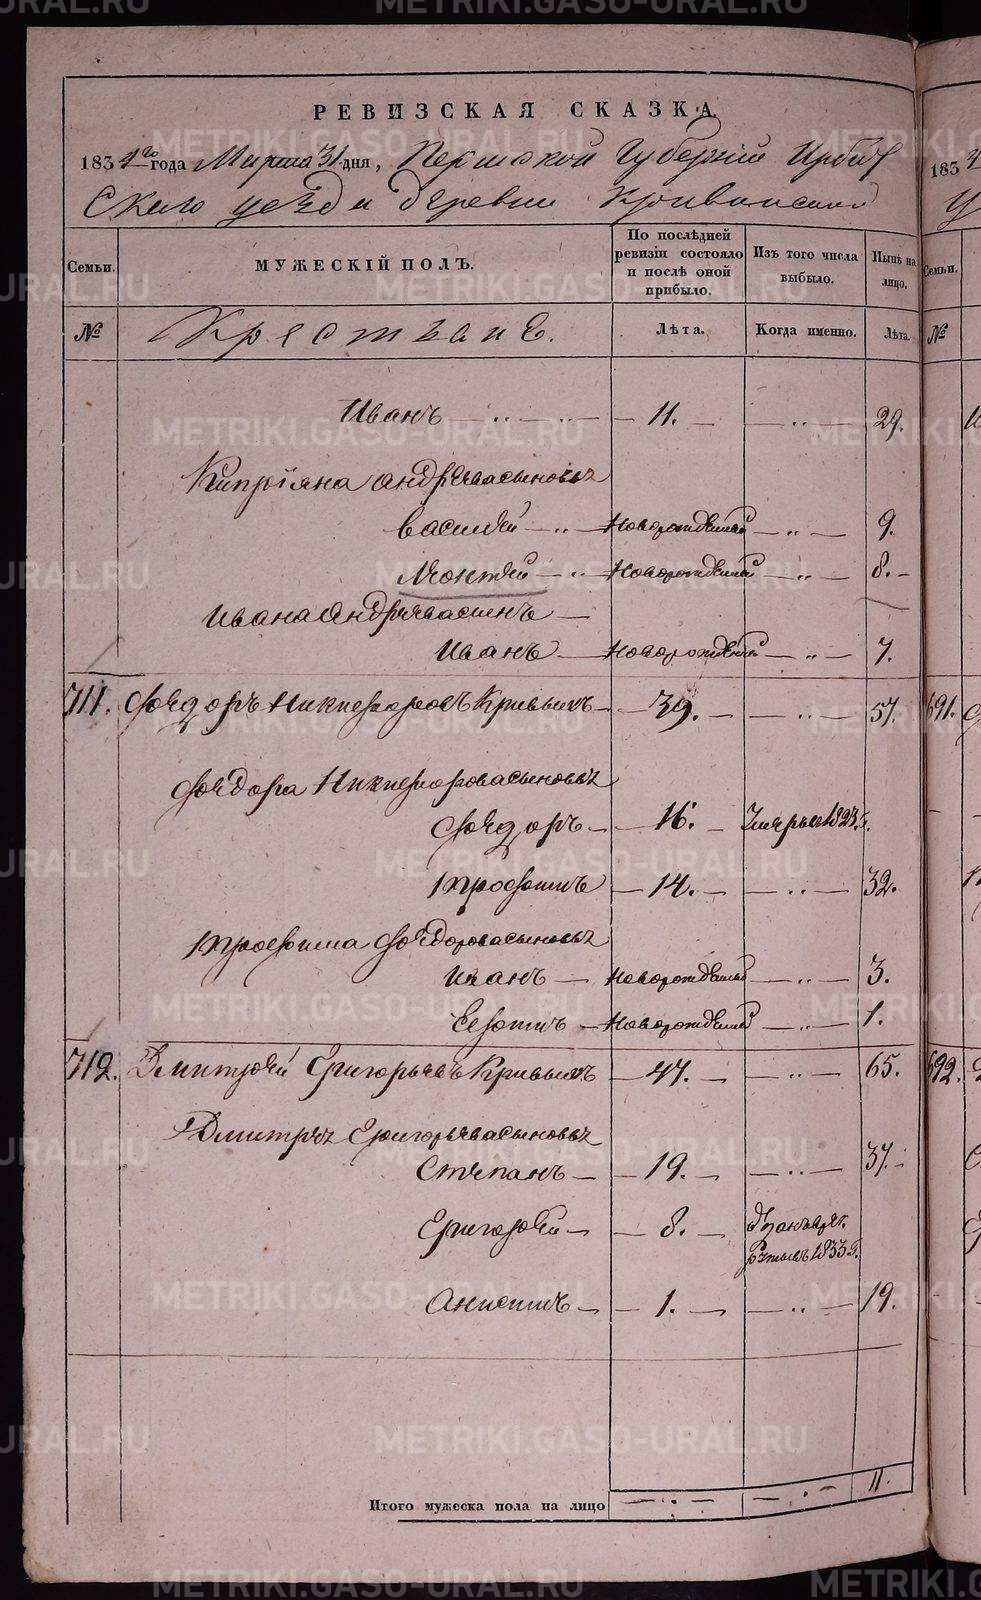 РЕВИЗСКАЯ СКАЗКА.
1834го года Марта 31 дня, Пермской Губернiи Ирбит
скаго уезда деревни
Семьи.
МУЖЕСКIЙ ПОЛЪ.
По послѣдней ревизiи состояло и послѣ оной прибыло.
Изъ того числа выбыло.
Нынѣ на лицо.
№
Крестьяне.
Лѣта.
Когда именно.
Лѣта.
Иванъ — 11. — 29.
Кипрiяна Андрѣева сыновья
Василей — новорожденный — 9.
Леонтей — новорожденный — 8.
Ивана Андрѣева сынъ —
Иванъ — новорожденный — 7.
711. Фѣдоръ Никифоровъ Кривыхъ — 39. — 57.
Фѣдора Никифорова сыновья
Фѣдоръ — 16. — Умеръ въ 1823 г.
Трофимъ — 14. — 32.
Трофима Фѣдорова сыновья
Иванъ — новорожденный — 3.
Ефимъ — новорожденный — 1.
712. Дмитрѣй Григорьевъ Кривыхъ — 47. — 65.
Дмитрея Григорьева сыновья
Степанъ — 19. — 37.
Григорѣй — 8. —
1833 г.
Анисимъ — 1. — 19.
Итого мужеска пола на лицо
11.
183
691.
692.
Семьи.
№
METRIKI.GASO-URAL.RU